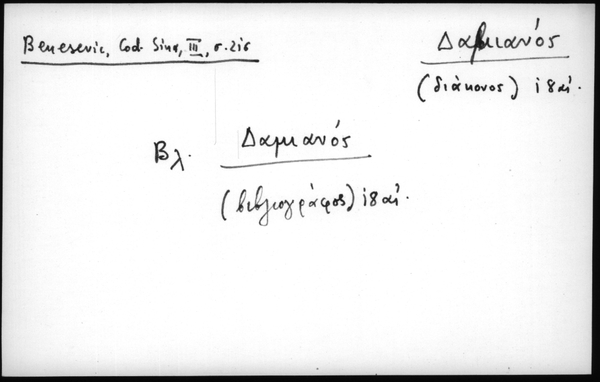 Benesevic, Cod. Sina, III, σ. 216
Δαμιανός
(διάκονος) ιδ' αἰ.
Βλ. Δαμιανός
(βιβλιογράφος) ιδ' αἰ.